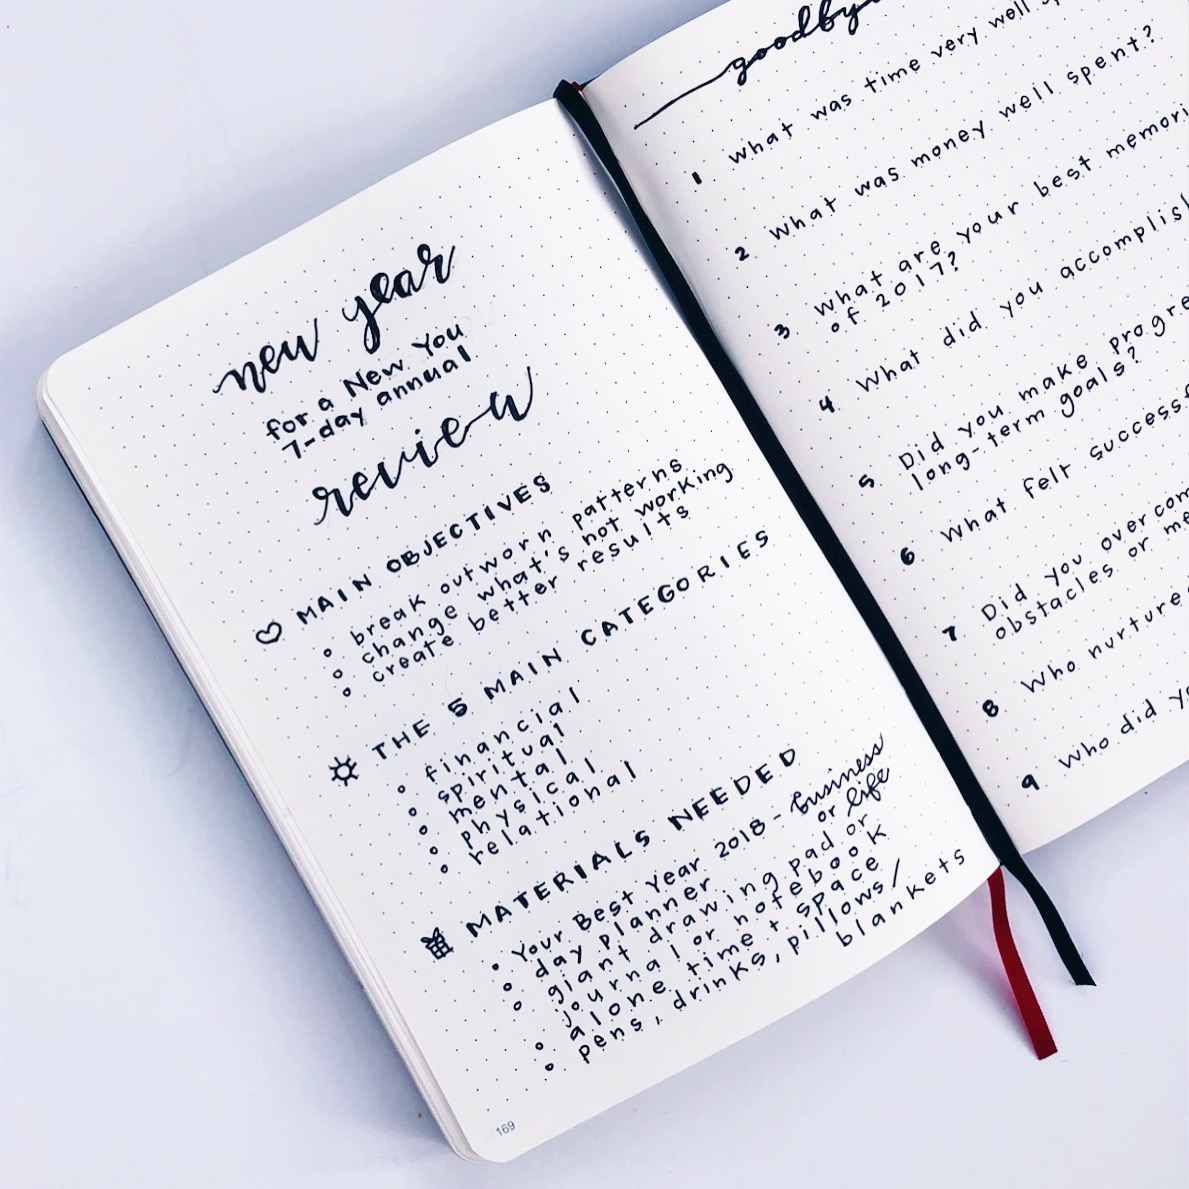 new year
for a New You
7-day annual
review
MAIN OBJECTIVES
break outworn patterns
change what's not working
create better results
THE 5 MAIN CATEGORIES
financial
spiritual
mental
physical
relational
MATERIALS NEEDED
Your Best Year 2018 - business
or life
day planner
giant drawing pad or
journal or notebook
alone time + space
pens, drinks, pillows/
blankets
169
goodbye
1 What was time very well
2 What was money well spent?
3 What are your best
of 2017?
4 What did you
5 Did you make
long-term goals?
6 What felt
7 Did you
obstacles or
8 Who
9 Who did